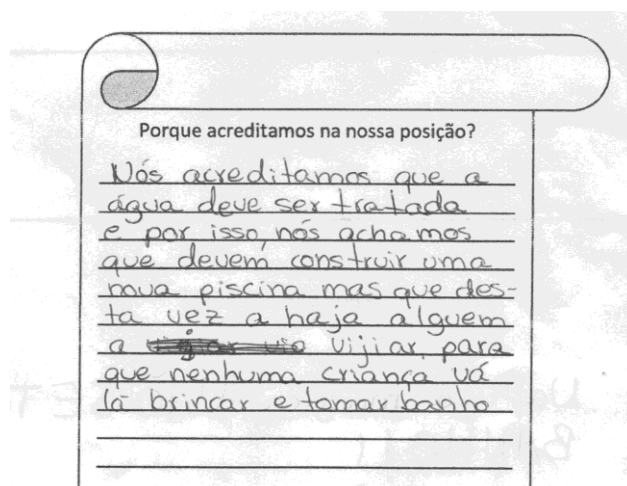 Porque acreditamos na nossa posição?
Nós acreditamos que a
água deve ser tratada
e por isso, nós achamos
que devem construir uma
mua piscina mas que des-
ta vez a haja alguem
a vijiar para
que nenhuma criança vá
lá brincar e tomar banho